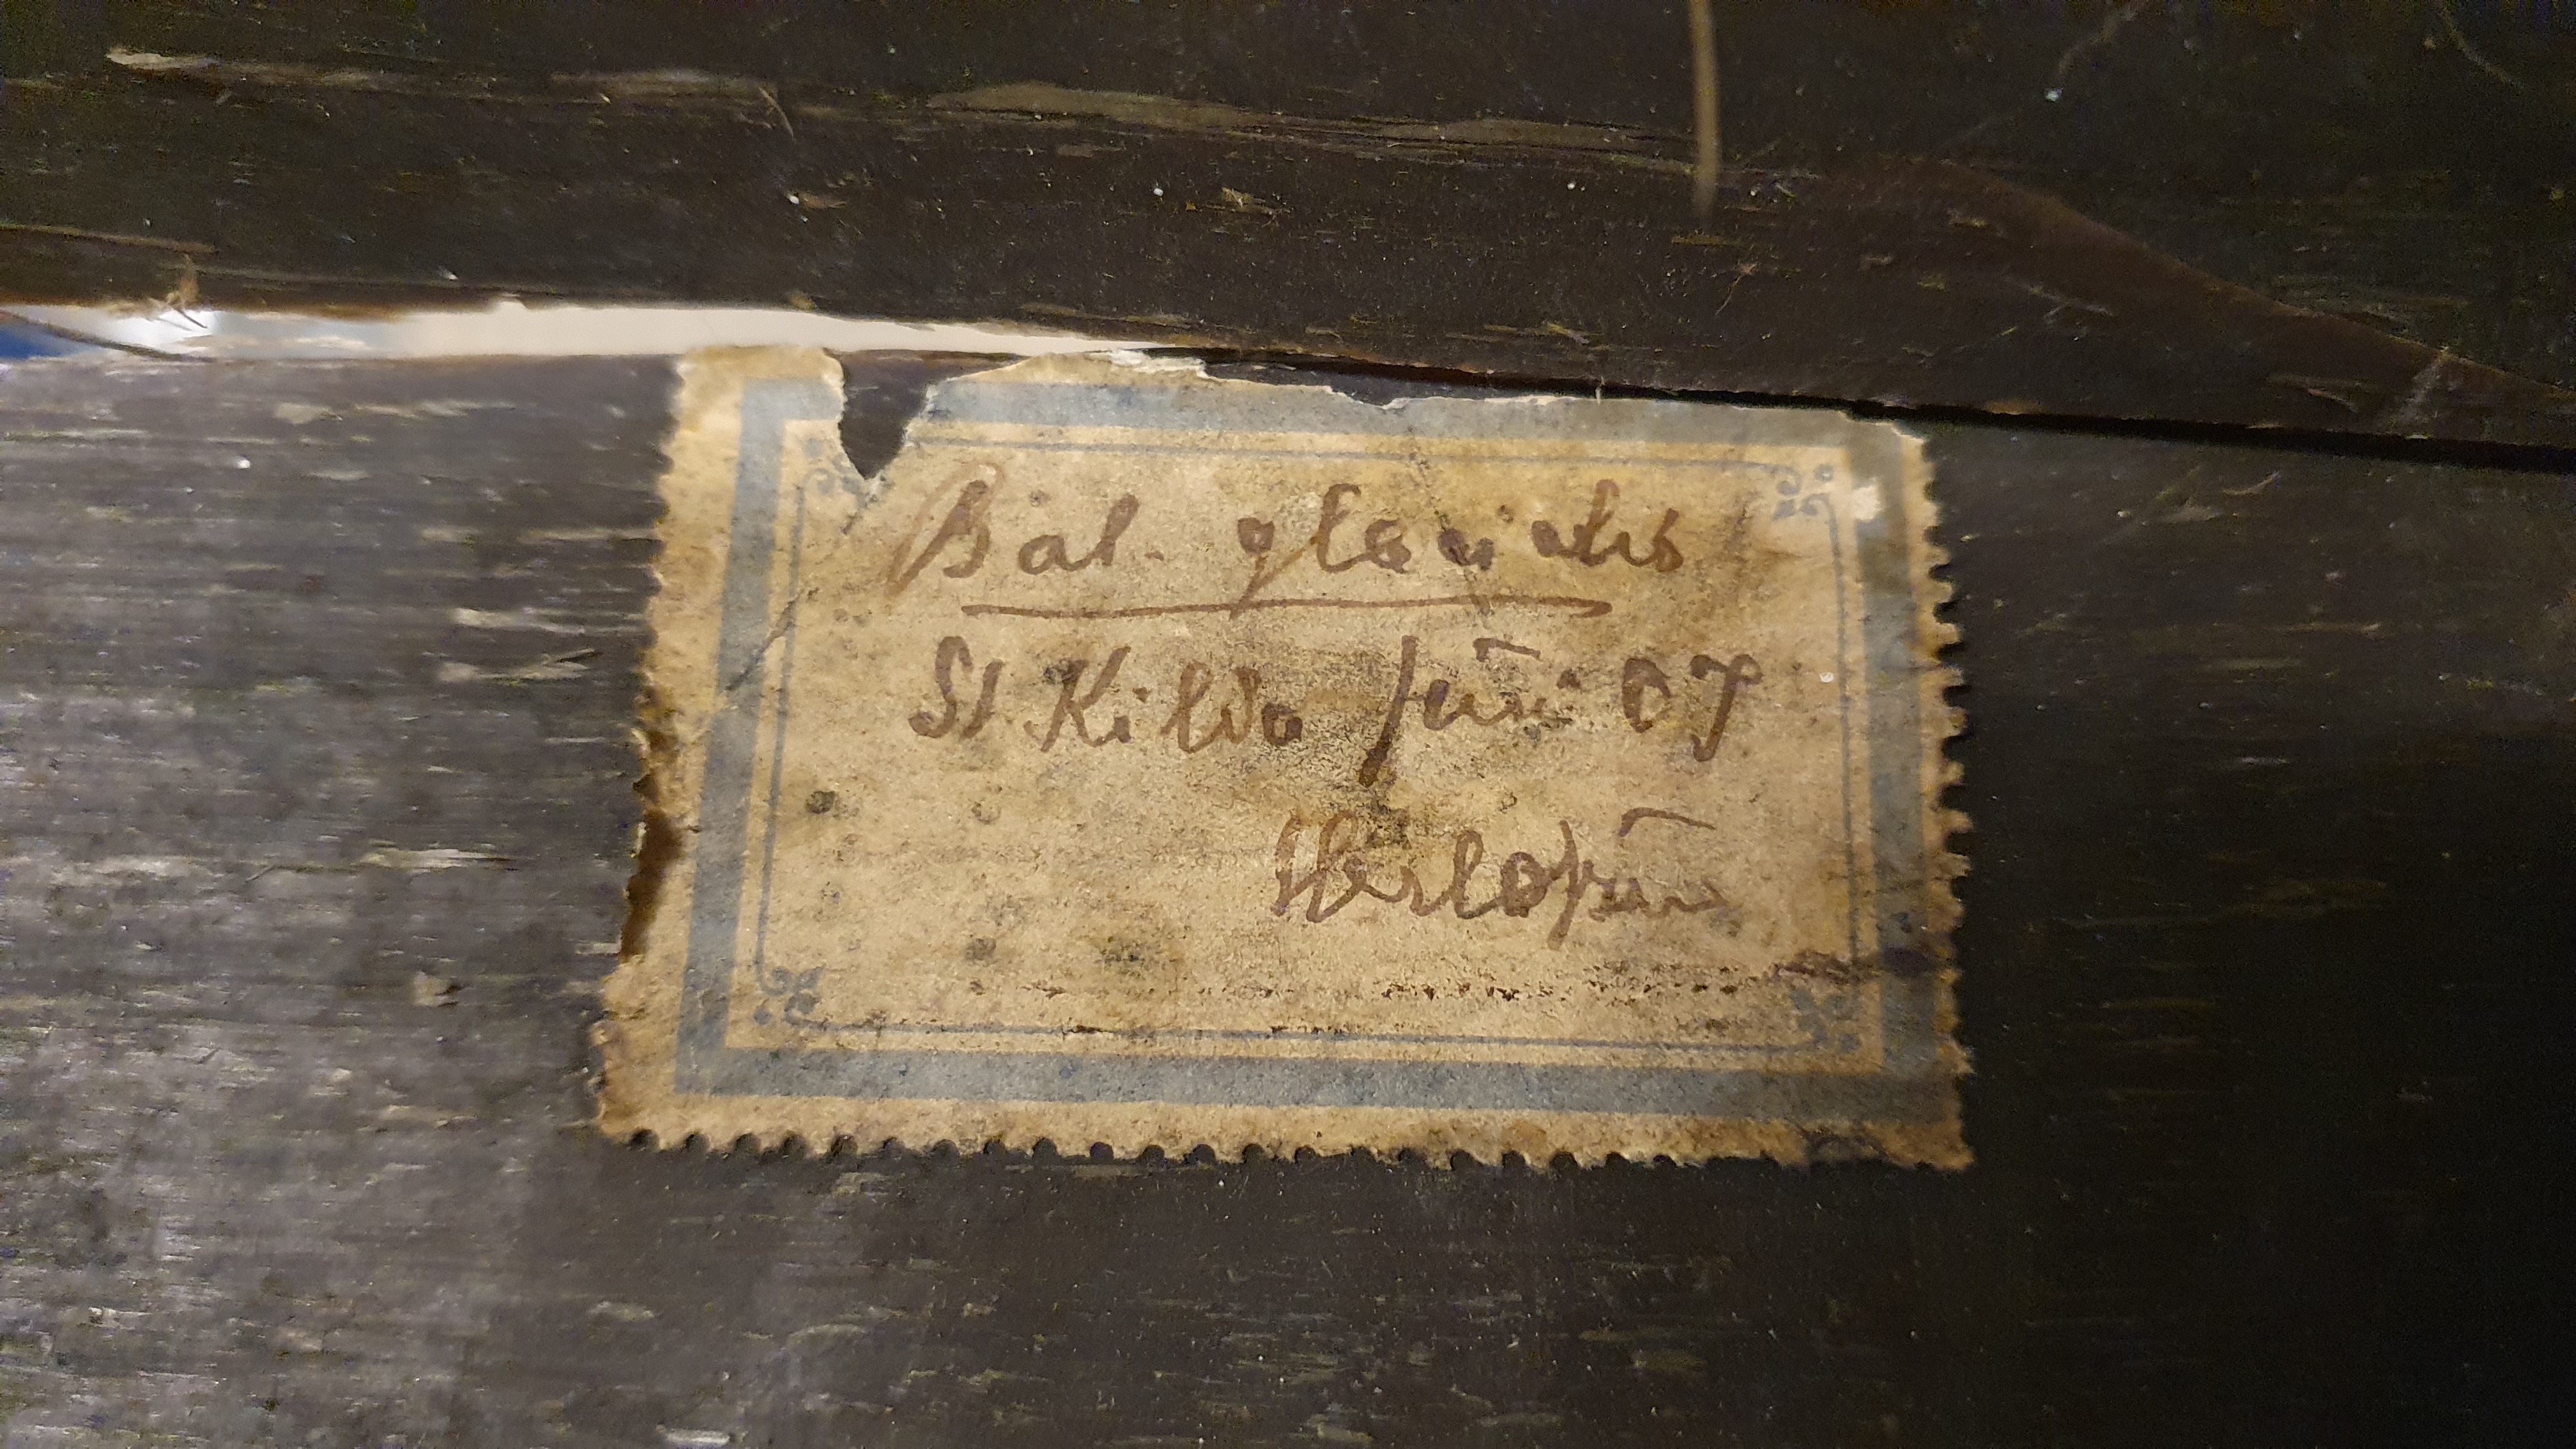 Bal. glacialis
St Kilda Juni 07
Herlofson